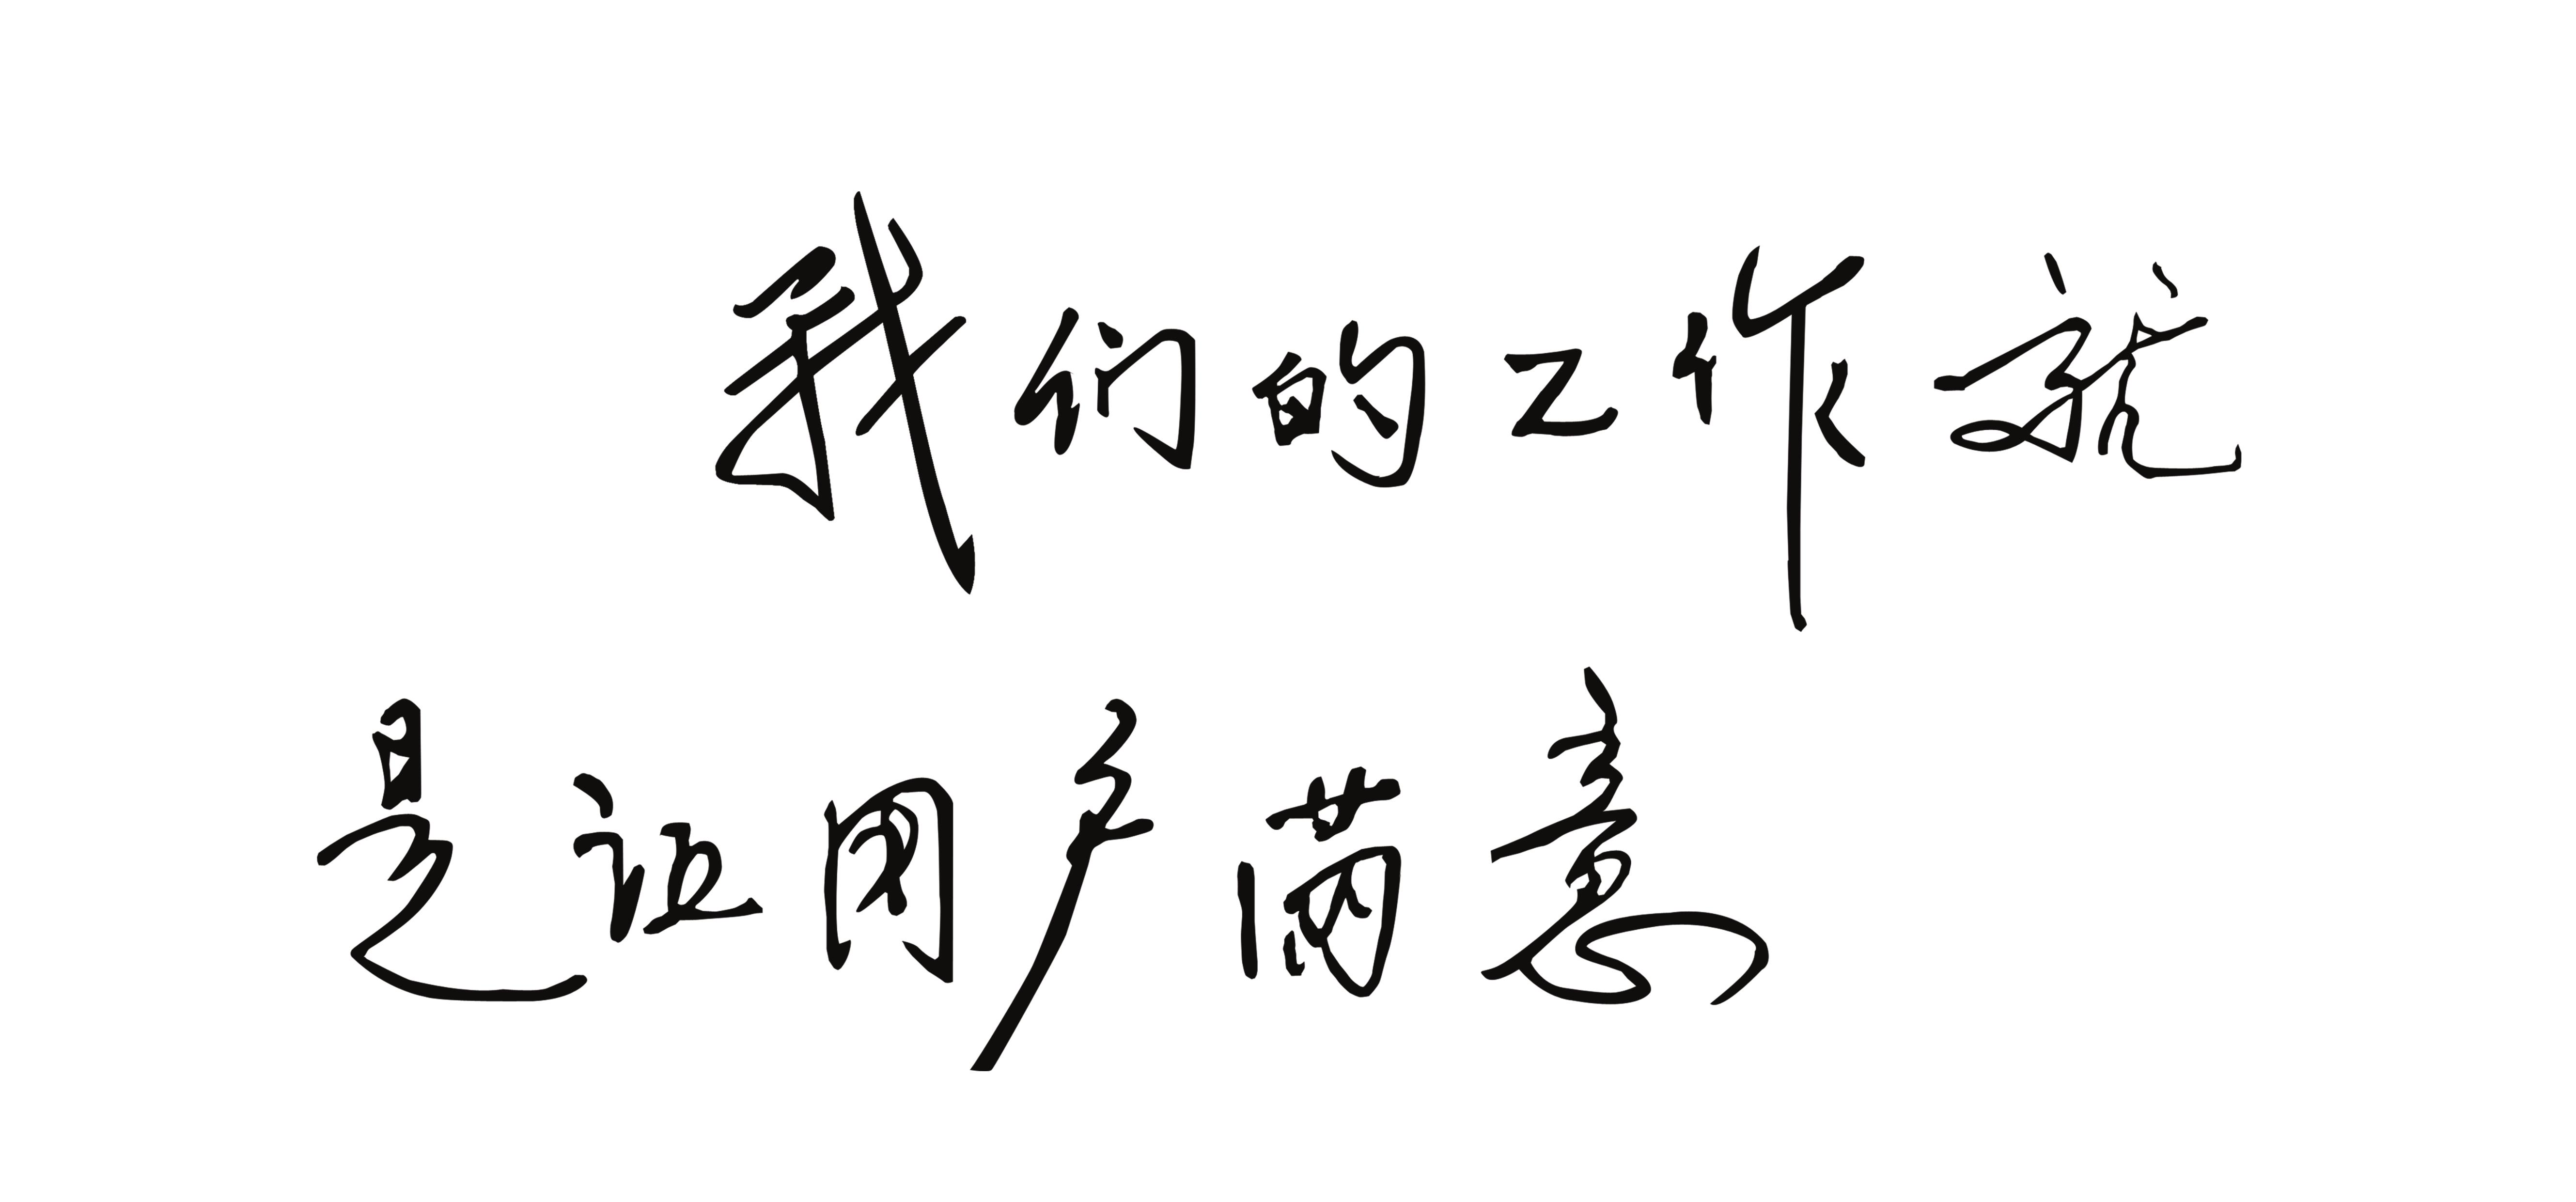 我们的工作就
是让用户满意